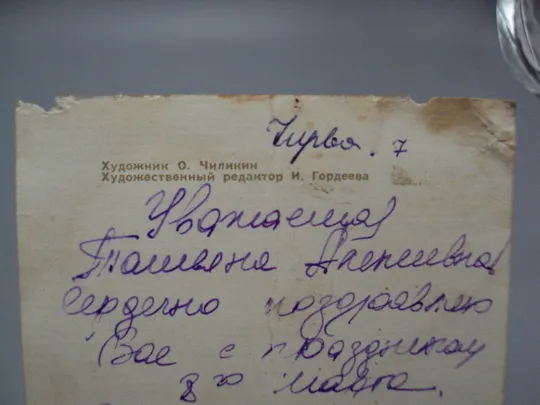 Чирва. 7
Художник О. Чиликин
Художественный редактор И. Гордеева
Уважаемая
Татьяна Алексеевна
Сердечно поздравляю
Вас с праздником
8го марта.